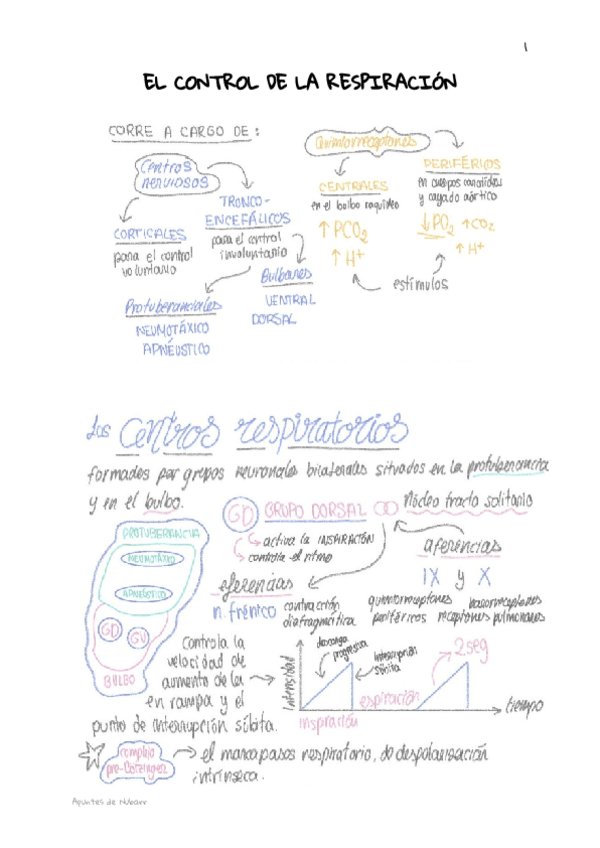 1
EL CONTROL DE LA RESPIRACIÓN
CORRE A CARGO DE:
Centros
nerviosos
CORTICALES
para el control
voluntario
TRONCO-
ENCEFÁLICOS
para el control
involuntario
Protuberanciales
NEUMOTÁXICO
APNÉUSTICO
Bulbares
VENTRAL
DORSAL
Quimiorreceptores
CENTRALES
en el bulbo raquídeo
↑PCO₂
↑H⁺
PERIFÉRICOS
en cuerpos carotídeos
y cayado aórtico
↓PO₂ ↑CO₂
↑H⁺
estímulos
Los Centros respiratorios
formados por grupos neuronales bilaterales situados en la protuberancia
y en el bulbo.
PROTUBERANCIA
NEUMOTÁXICO
APNÉUSTICO
GD
GV
BULBO
GD GRUPO DORSAL
Núcleo tracto solitario
activa la INSPIRACIÓN
controla el ritmo
eferencias
n. frénico
contracción
diafragmática
aferencias
IX y X
quimiorreceptores
periféricos
barorreceptores
receptores pulmonares
Controla la
velocidad de
aumento de la
en rampa y el
punto de interrupción súbita.
Intensidad
descarga
progresiva
interrupción
súbita
2 seg
espiración
tiempo
inspiración
complejo
pre-Bötzinger
el marcapasos respiratorio, de despolarización
intrínseca.
Apuntes de Nubarr